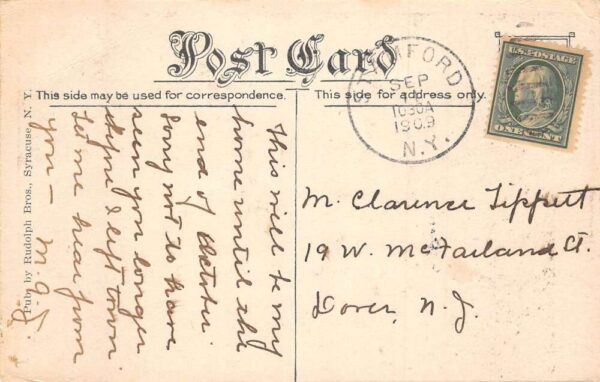 Post Card
This side may be used for correspondence.
This side for address only.
Pub. by Rudolph Bros., Syracuse, N. Y.
STAMFORD
SEP
1030A
1909
N.Y.
U.S. POSTAGE
ONE CENT
This will be my
home until the
end of October.
Sorry not to have
seen you longer
before I left town.
Let me hear from
you – M.
M. Clarence Tippett
19 W. McFarland St.
Dover, N. J.